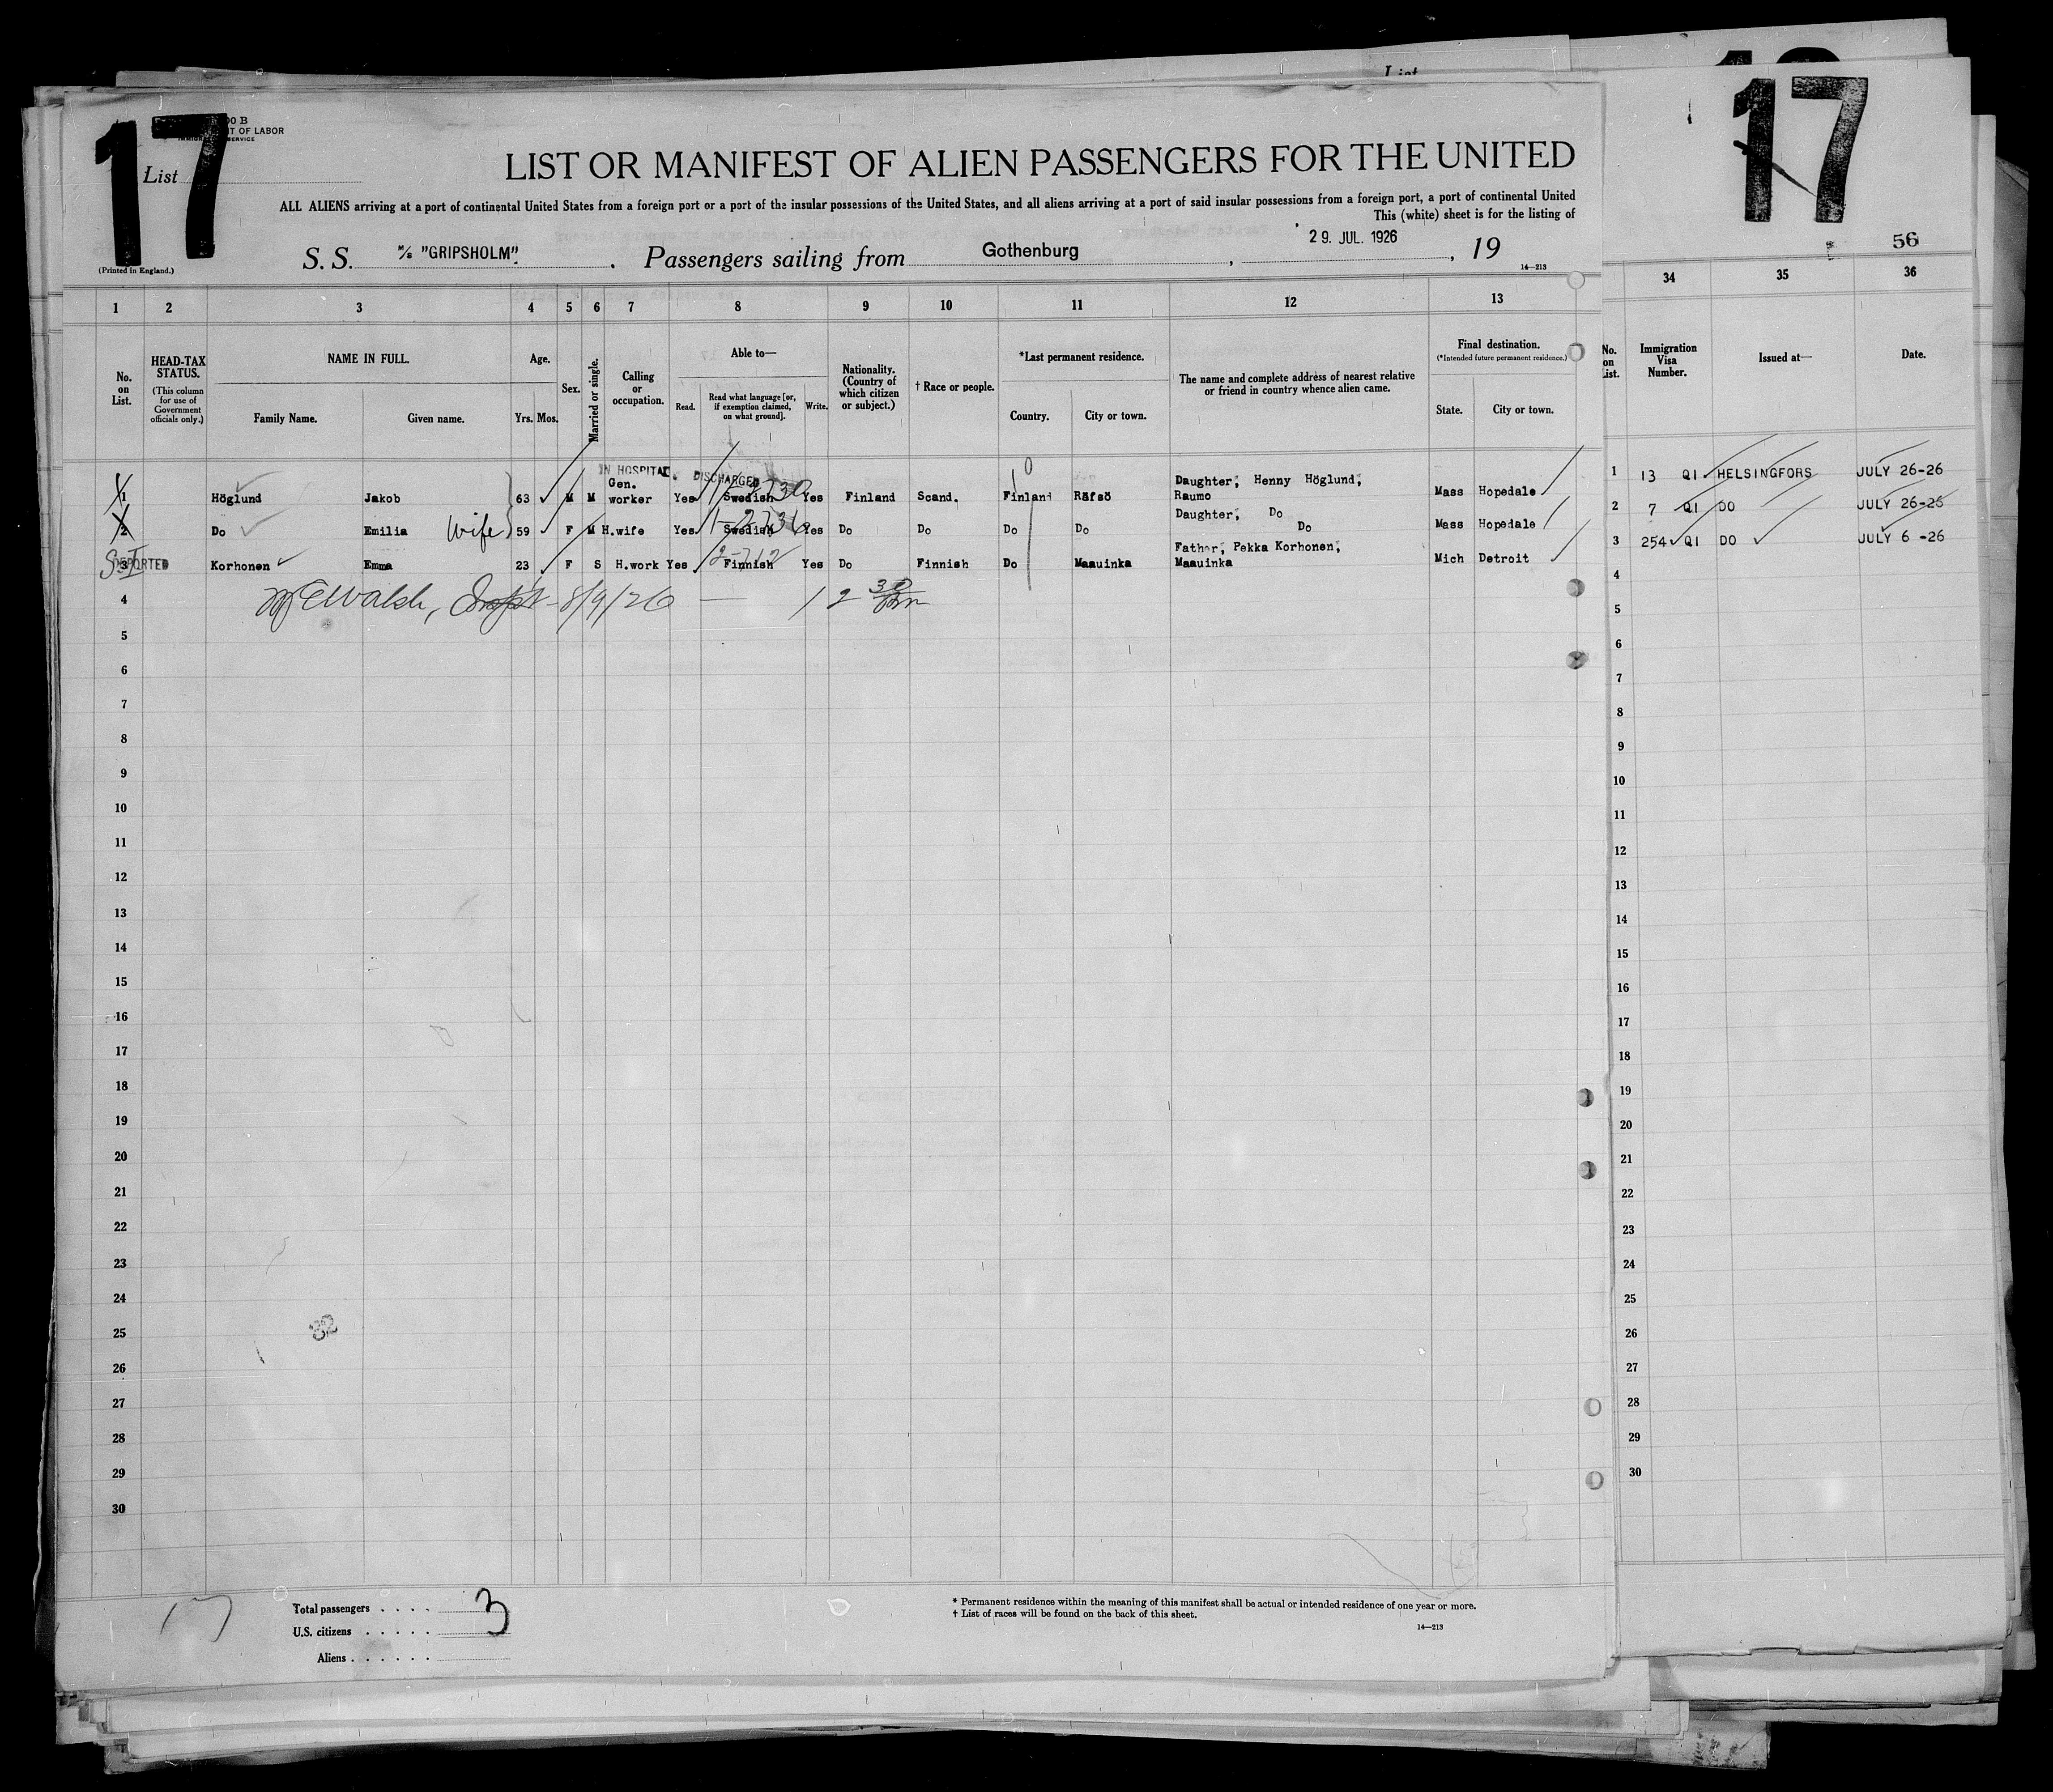 List
17
17
00 B
NT OF LABOR
SERVICE
List
LIST OR MANIFEST OF ALIEN PASSENGERS FOR THE UNITED
ALL ALIENS arriving at a port of continental United States from a foreign port or a port of the insular possessions of the United States, and all aliens arriving at a port of said insular possessions from a foreign port, a port of continental United
This (white) sheet is for the listing of
S. S. M/S "GRIPSHOLM". Passengers sailing from Gothenburg, 29. JUL. 1926, 19
(Printed in England.)
14—213
56
1 2 3 4 5 6 7 8 9 10 11 12 13 34 35 36
No. on List.
HEAD-TAX STATUS.
(This column for use of Government officials only.)
NAME IN FULL.
Family Name. Given name.
Age.
Yrs. Mos.
Sex.
Married or single.
Calling or occupation.
Able to—
Read. Read what language [or, if exemption claimed, on what ground]. Write.
Nationality. (Country of which citizen or subject.)
† Race or people.
*Last permanent residence.
Country. City or town.
The name and complete address of nearest relative or friend in country whence alien came.
Final destination.
(*Intended future permanent residence.)
State. City or town.
No. on List.
Immigration Visa Number.
Issued at—
Date.
IN HOSPITAL. DISCHARGED
1 Höglund Jakob 63 M M Gen. worker Yes Swedish Yes Finland Scand. Finland Räfsö Daughter, Henny Höglund, Raumo Mass Hopedale
1 13 QI HELSINGFORS JULY 26-26
2 Do Emilia Wife 59 F M H.wife Yes Swedish Yes Do Do Do Do Daughter, Do Do Mass Hopedale
2 7 QI DO JULY 26-26
S.I. DEPORTED
3 Korhonen Emma 23 F S H.work Yes 2-712 Finnish Yes Do Finnish Do Maauinka Father, Pekka Korhonen, Maauinka Mich Detroit
3 254 QI DO JULY 6 -26
4 Walsh, Inspt - 8/9/26 — 12 30 Pm
5
6
7
8
9
10
11
12
13
14
15
16
17
18
19
20
21
22
23
24
25
26
27
28
29
30
4
5
6
7
8
9
10
11
12
13
14
15
16
17
18
19
20
21
22
23
24
25
26
27
28
29
30
32
17
Total passengers . . . . 3
U.S. citizens . . . . .
Aliens . . . . . .
* Permanent residence within the meaning of this manifest shall be actual or intended residence of one year or more.
† List of races will be found on the back of this sheet.
14—213